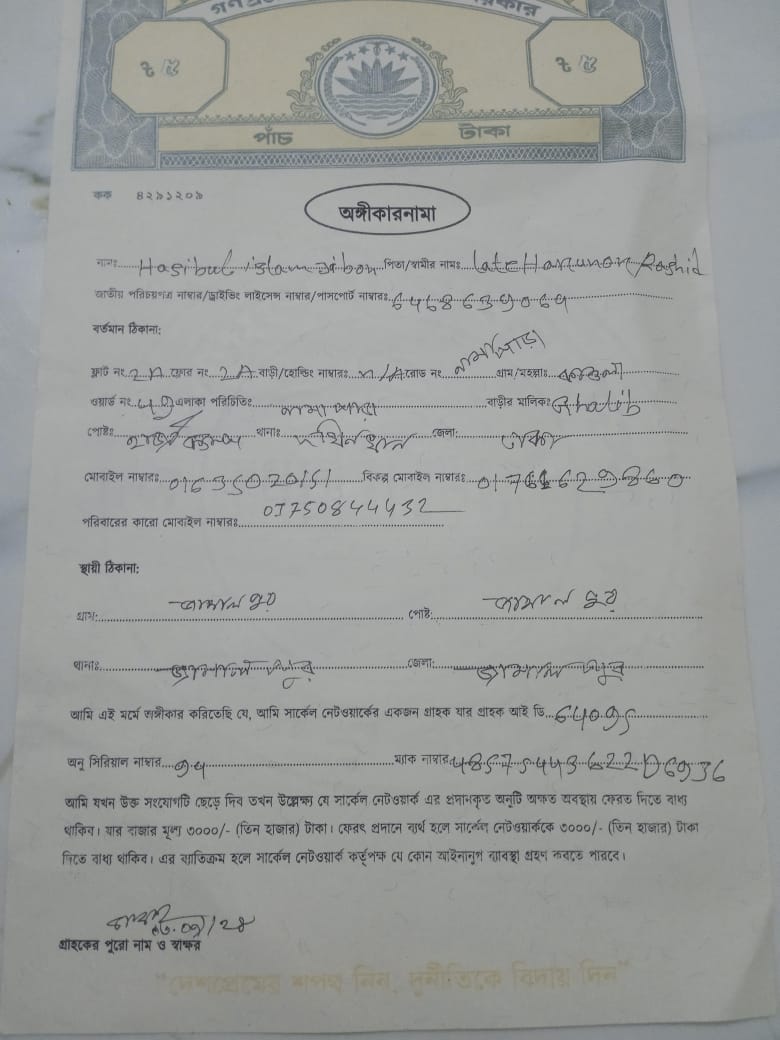 ৳ ৫ ৳ ৫
পাঁচ টাকা
কক ৪২৯১২০৯
অঙ্গীকারনামা
নামঃ Hasibul islam Jibon পিতা/স্বামীর নামঃ Late Harunor Rashid
জাতীয় পরিচয়পত্র নাম্বার/ড্রাইভিং লাইসেন্স নাম্বার/পাসপোর্ট নাম্বারঃ
বর্তমান ঠিকানা:
ফ্লাট নং 2A ফ্লোর নং 2A বাড়ী/হোল্ডিং নাম্বারঃ N/A রোড নং নামাপাড়া গ্রাম/মহল্লাঃ
ওয়ার্ড নং 49 এলাকা পরিচিতিঃ নামাপাড়া বাড়ীর মালিকঃ
পোষ্টঃ থানাঃ দক্ষিনখান জেলা: ঢাকা
মোবাইল নাম্বারঃ 01635020151 বিকল্প মোবাইল নাম্বারঃ
পরিবারের কারো মোবাইল নাম্বারঃ 01750844432
স্থায়ী ঠিকানা:
গ্রাম: জামালপুর পোষ্ট: জামালপুর
থানাঃ জামালপুর জেলা: জামালপুর
আমি এই মর্মে অঙ্গীকার করিতেছি যে, আমি সার্কেল নেটওয়ার্কের একজন গ্রাহক যার গ্রাহক আই ডি 64095
অনু সিরিয়াল নাম্বার ম্যাক নাম্বার
আমি যখন উক্ত সংযোগটি ছেড়ে দিব তখন উল্লেক্ষ্য যে সার্কেল নেটওয়ার্ক এর প্রদানকৃত অনুটি অক্ষত অবস্থায় ফেরত দিতে বাধ্য
থাকিব। যার বাজার মূল্য ৩০০০/- (তিন হাজার) টাকা। ফেরৎ প্রদানে ব্যর্থ হলে সার্কেল নেটওয়ার্ককে ৩০০০/- (তিন হাজার) টাকা
দিতে বাধ্য থাকিব। এর ব্যতিক্রম হলে সার্কেল নেটওয়ার্ক কর্তৃপক্ষ যে কোন আইনানুগ ব্যাবস্থা গ্রহণ করতে পারবে।
গ্রাহকের পুরো নাম ও স্বাক্ষর
"দেশপ্রেমের শপথ নিন, দুর্নীতিকে বিদায় দিন"